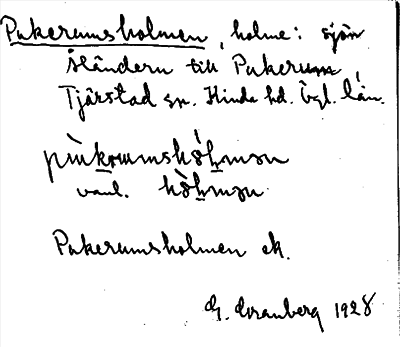 Pukerumsholmen, holme: sjön
Åländern till Pukerum
Tjärstad sn. Kinda hd. Ögl. län.
pùkrumshòlmən
vanl. hòlmən
Pukerumsholmen ek.
G. Granberg 1928